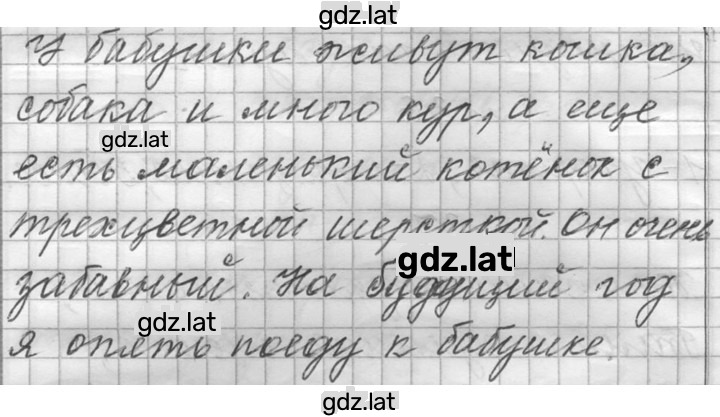 gdz.lat
У бабушки живут кошка,
собака и много кур, а еще
gdz.lat
есть маленький котёнок с
трехцветной шерсткой. Он очень
gdz.lat
забавный. На будущий год
gdz.lat
я опять поеду к бабушке.
gdz.lat